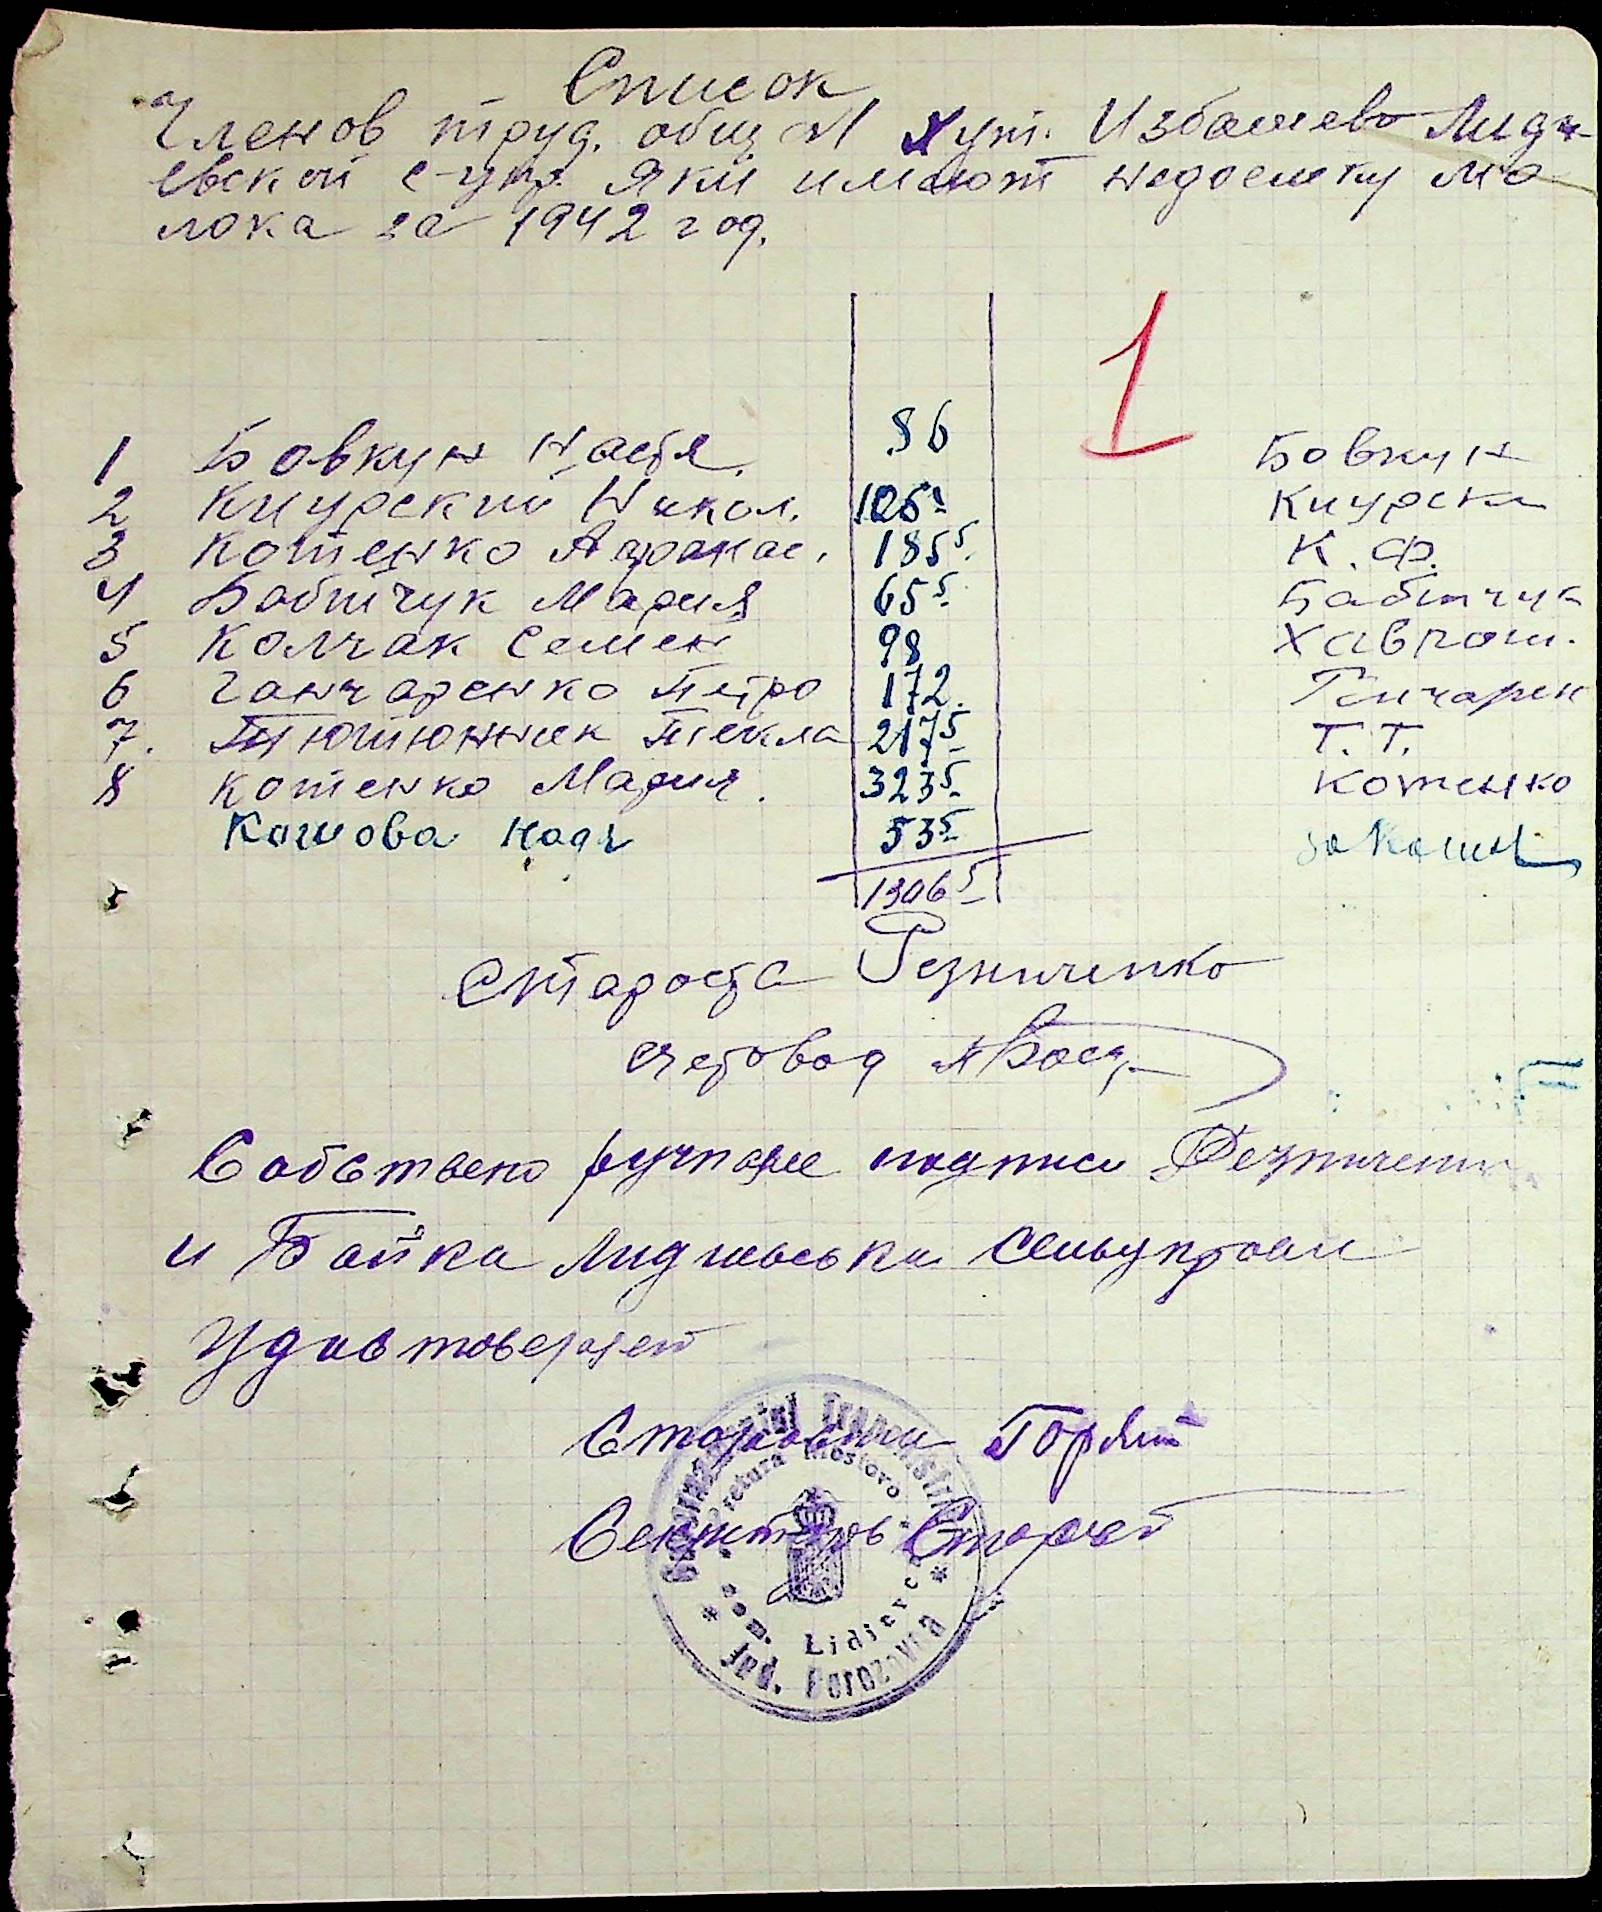 Список
Членов труд. общ № 1 Хут. Избашево Лиди-
евской с-упр. яки имеют недоемку мо
лока за 1942 год.
1
1 Бовкун Настя. 86 Бовкун
2 Кнурский Никол. 105 Кнурски
3 Котенко Афанас. 185⁵ К. Ф.
4 Бабтчук Мария 65⁵ Бабтчук
5 Колчак Семен 98 Хаврош.
6 Ганчаренко Петро 172. Гончарен
7. Тютюнник Текла 217⁵ Т. Т.
8 Котенко Мария. 323⁵ Котенко
Кошова Надя 53⁵ за Кошов
1306⁵
Староста Резниченко
Счетовод
Собствено ручные подписи Резниченко
и Бойка Лидиевська сельуправи
Удостоверяет
Guvernamantul Transnistriei
Pretura Mostovoi
Com. Lidievca
Jud. Berezovca
Секретарь